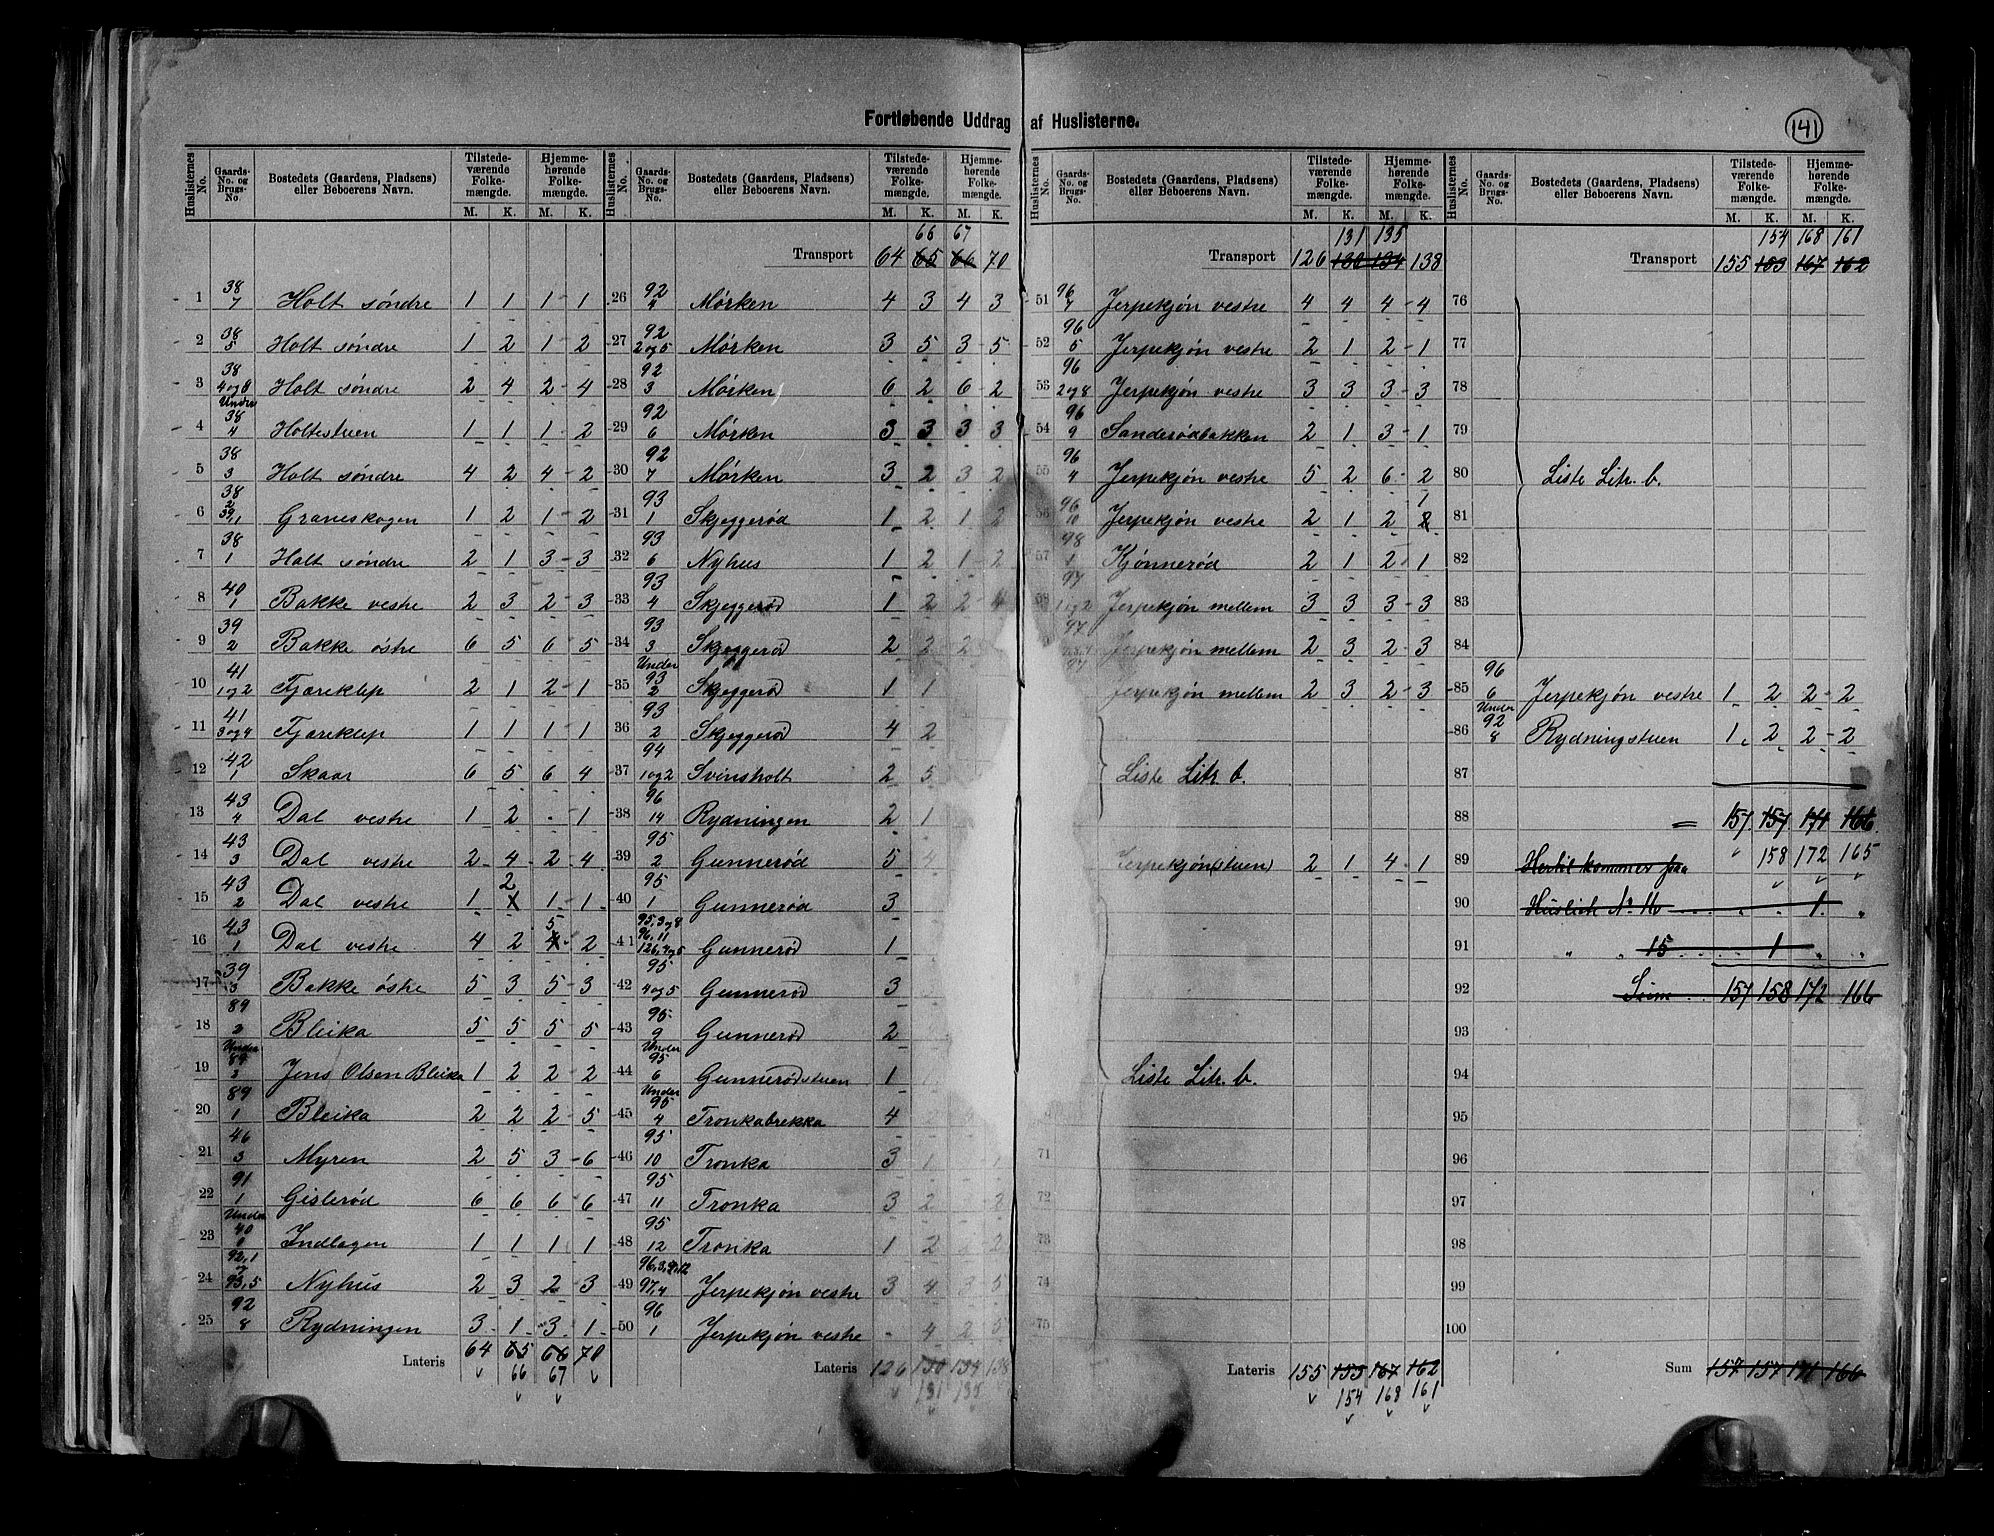 Fortløbende Uddrag af Huslisterne.
141
Huslisternes No. | Gaards-No. og Brugs-No. | Bostedets (Gaardens, Pladsens) eller Beboerens Navn. | Tilstedeværende Folkemængde. M. K. | Hjemmehørende Folkemængde. M. K.
1 38/7 Holt søndre 1 1 1 1
2 38/5 Holt søndre 1 2 1 2
3 38/4og8 Holt søndre 2 4 2 4
4 Under 38/4 Holtestuen 1 1 1 2
5 38/3 Holt søndre 4 2 4 2
6 38/2 39,1 Graneskogen 1 2 1 2
7 38/1 Holt søndre 2 1 3 3
8 40/1 Bakke vestre 2 3 2 3
9 39/2 Bakke østre 6 5 6 5
10 41/1og2 Fjæreklep 2 1 2 1
11 41/3og4 Fjæreklep 1 1 1 1
12 42/1 Skaar 6 5 6 4
13 43/4 Dal vestre 1 2 - 1
14 43/3 Dal vestre 2 4 2 4
15 43/2 Dal vestre 1 2 1 1
16 43/1 Dal vestre 4 2 5 2
17 39/3 Bakke østre 5 3 5 3
18 89/2 Bleika 5 5 5 5
19 Under 89/2 Jens Olsen Bleika 1 2 2 2
20 89/1 Bleika 2 2 2 5
21 46/3 Myren 2 5 3 6
22 91/1 Gislerød 6 6 6 6
23 Under 40/1 Indlagen 1 1 1 1
24 92,1 og 93,5 Nyhus 2 3 2 3
25 92/8 Rydningen 3 1 3 1
Lateris 64 65 66 70
66 67
66 67
Transport 64 65 66 70
26 92/4 Mørken 4 3 4 3
27 92/2og5 Mørken 3 5 3 5
28 92/3 Mørken 6 2 6 2
29 92/6 Mørken 3 3 3 3
30 92/7 Mørken 3 2 3 2
31 93/1 Skjeggerød 1 2 1 2
32 93/6 Nyhus 1 2 1 2
33 93/4 Skjeggerød 1 2 2 4
34 93/3 Skjeggerød 2 2 2
35 Under 93/2 Skjeggerød 1 1
36 93/2 Skjeggerød 4 2
37 94/1og2 Svinsholt 2 5
38 96/14 Rydningen 2 1
39 95/2 Gunnerød 5 4
40 95/1 Gunnerød 3
41 95,3og8 96,11 126,4og5 Gunnerød 1
42 95/4og5 Gunnerød 3
43 95/9 Gunnerød 2
44 Under 95/6 Gunnerødstuen 1
45 Under 95/4 Tronkabrekka 4 2
46 95/10 Tronka 3 1
47 95/11 Tronka 3 2
48 95/12 Tronka 1 2
49 97,4 Jerpekjøn vestre 3 4 3 5
50 96/1 Jerpekjøn vestre - 4 2 5
Lateris 126 130 134 138
131 135
131 135
Transport 126 130 134 138
51 96/7 Jerpekjøn vestre 4 4 4 4
52 96/5 Jerpekjøn vestre 2 1 2 1
53 96/2og8 Jerpekjøn vestre 3 3 3 3
54 96/9 Sanderødbakken 2 1 3 1
55 96/4 Jerpekjøn vestre 5 2 6 2
56 96/10 Jerpekjøn vestre 2 1 2 1
57 98/1 Kjønnerød 2 1 2 1
58 97/1og2 Jerpekjøn mellem 3 3 3 3
97 Jerpekjøn mellem 2 3 2 3
97 Jerpekjøn mellem 2 3 2 3
Liste Litr. b.
Jerpekjøn(stuen) 2 1 4 1
Liste Litr. b.
71
72
73
74
75
Lateris 155 153 167 162
154 168 161
154 168 161
Transport 155 153 167 162
76
77
78
79
80 Liste Litr. b.
81
82
83
84
85 96/6 Jerpekjøn vestre 1 2 2 2
86 Under 92/8 Rydningstuen 1 2 2 2
87
88 = 157 157 171 166
89 Hertil kommer paa " 158 172 165
90 Husliste No. 16 1
91 " " 15 1
92 Sum 157 158 172 166
93
94
95
96
97
98
99
100
Sum 157 157 171 166